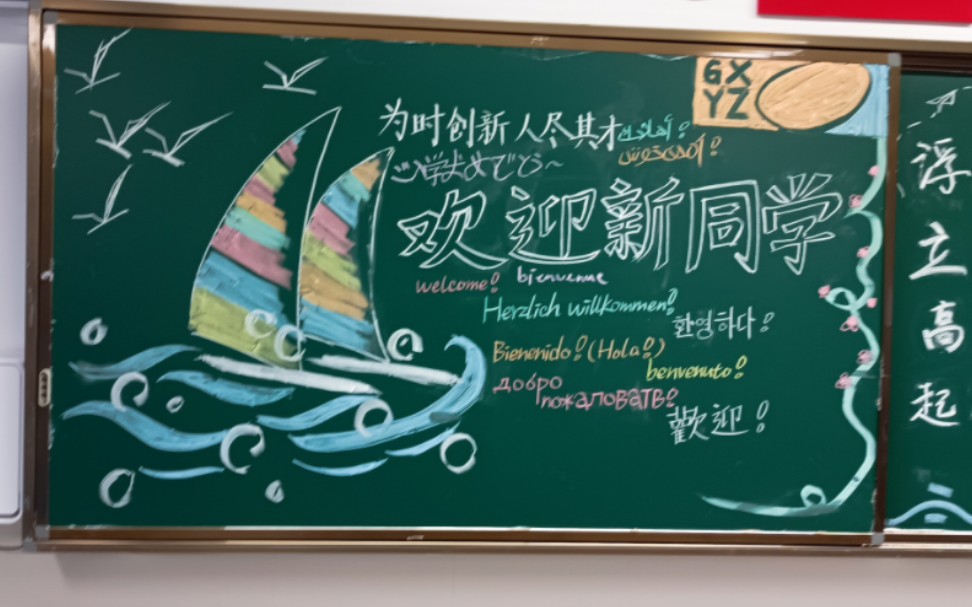 GX
YZ
为时创新人尽其才
ご入学おめでとう~
欢迎新同学
welcome!
bienvenue
Herzlich willkommen!
환영하다!
Bienenido! (Hola!)
benvenuto!
добро
пожаловать!
歡迎!
浮
立
高
起